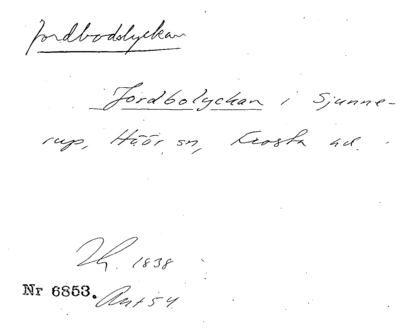 Jordbodslyckan
Jordbolyckan i Sjunne-
rup, Höör sn, Frosta hd.
1838
Nr 6853.